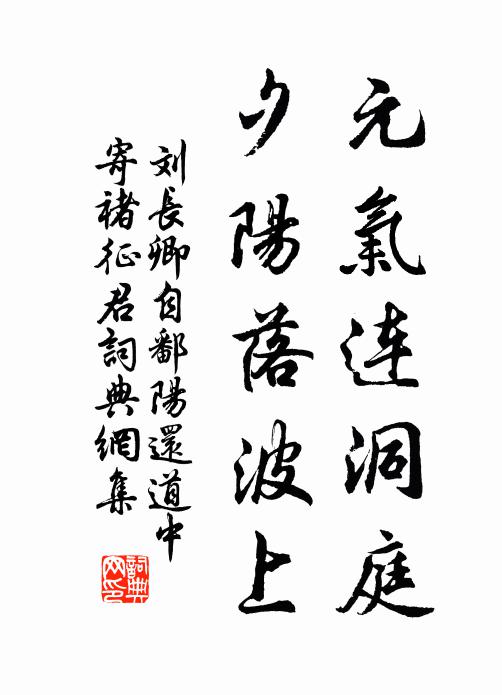 元氣连洞庭
夕陽落波上
刘長卿自鄱陽還道中
寄褚征君詞典網集
詞典
网印